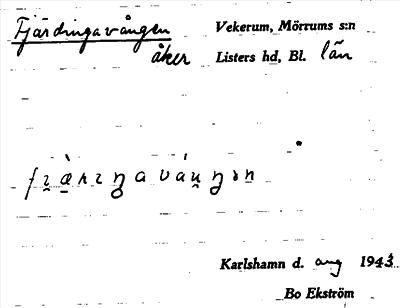 Fjärdingavången
Vekerum, Mörrums s:n
åker
Listers hd, Bl. län
Karlshamn d. aug 1943
Bo Ekström